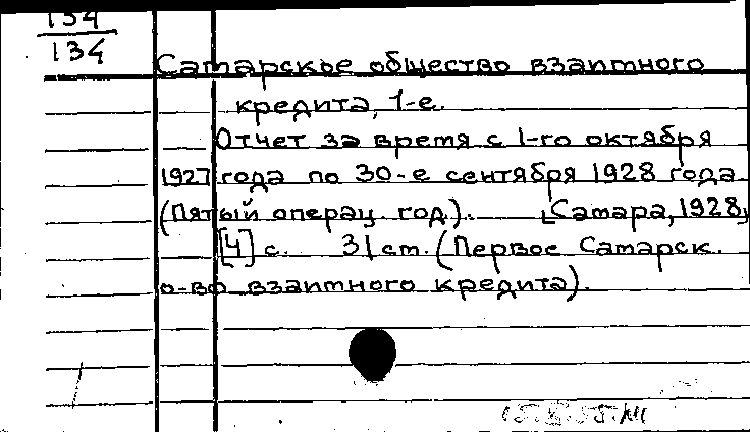 134
134
Самарское общество взаимного
кредита, 1-е.
Отчет за время с 1-го октября
1927 года по 30-е сентября 1928 года.
(Пятый операц. год.). [Самара, 1928]
[4] с. 31 см. (Первое Самарск.
о-во взаимного кредита).